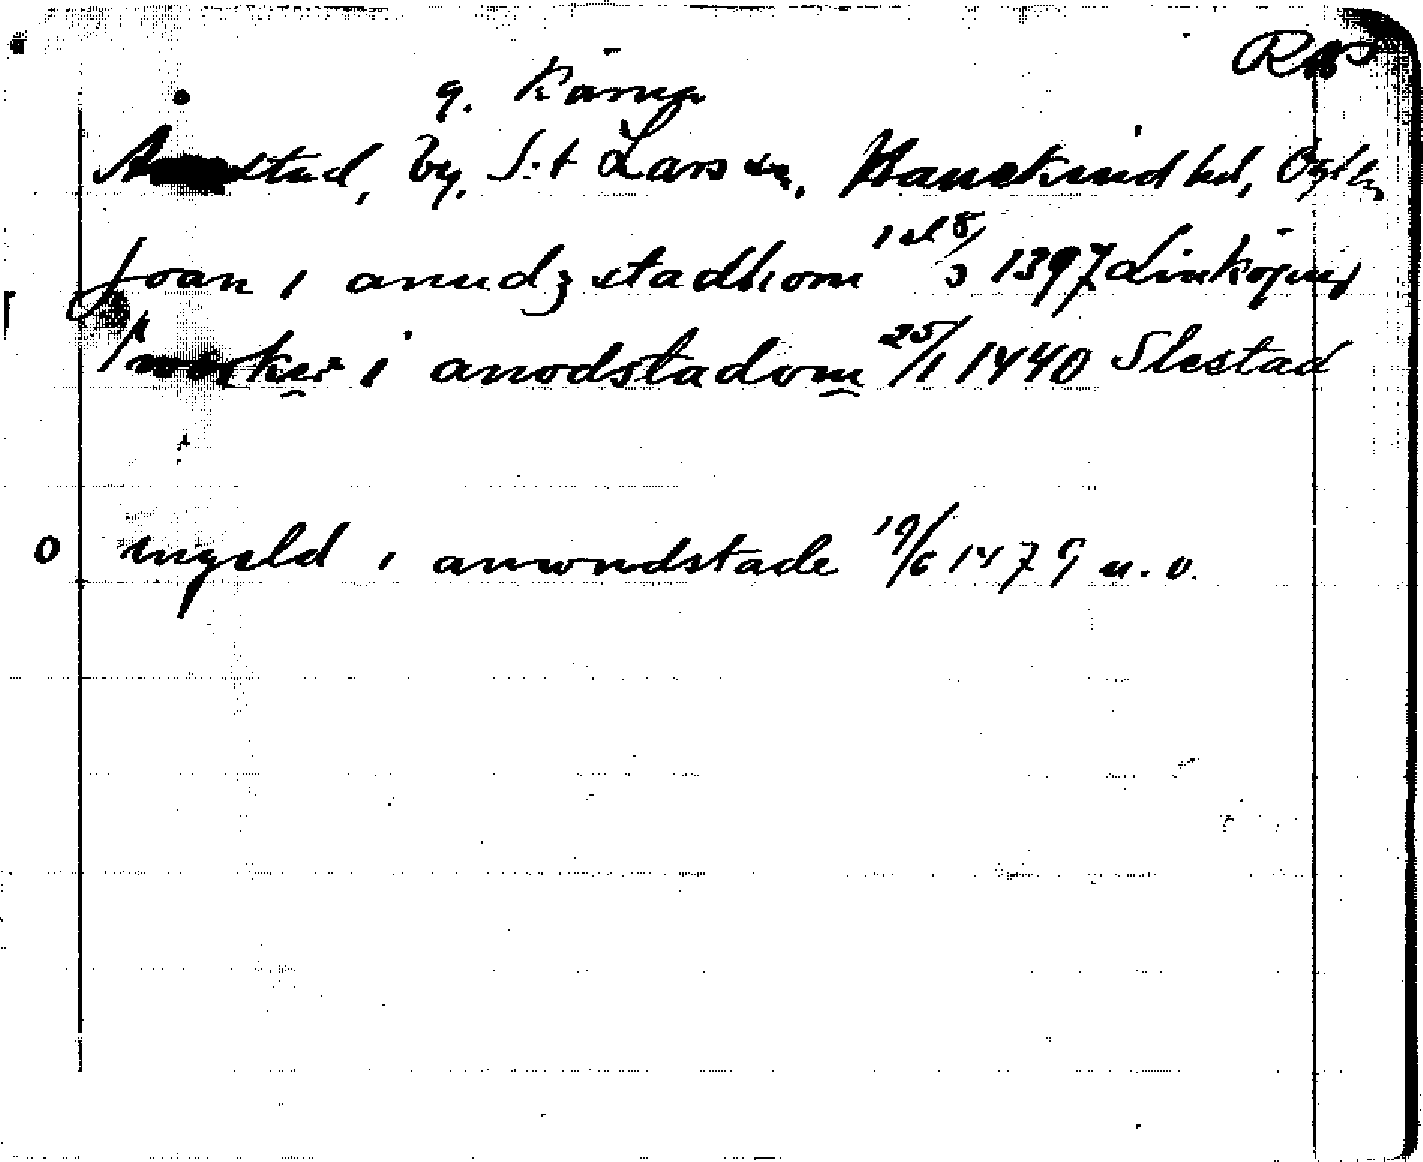 g. Kärna
stad, by, S:t Lars sn, Hanekind hd, Ögtld
joan i anudz stadhom 1 el 8/3 1397 Linköping
i anodstadom 25/1 1440 Slestad
o ingeld i anwndstade 19/6 1479 u. o.